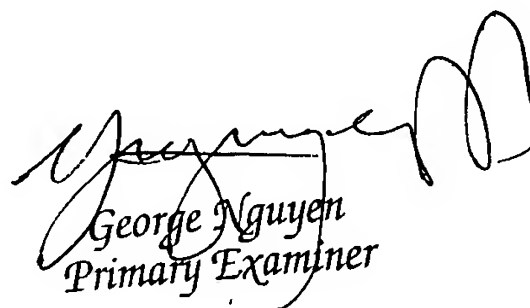 George Nguyen
Primary Examiner